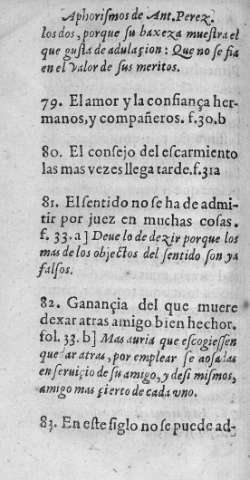 Aphorismos de Ant. Perez.
los dos, porque su baxeza muestra el
que gusta de adulaçion: Que no se fia
en el valor de sus meritos.
79. El amor y la confiança her-
manos, y compañeros. f.30.b
80. El consejo del escarmiento
las mas vezes llega tarde. f.31a
81. El sentido no se ha de admi-
tir por juez en muchas cosas.
f. 33. a] Deue lo de dezir porque los
mas de los objectos del sentido son ya
falsos.
82. Ganançia del que muere
dexar atras amigo bien hechor.
fol. 33. b] Mas auria que escogiessen
quedar atras, por emplear se
en seruiçio de su amigo, y de si mismos,
amigo mas çierto de cada uno.
83. En este siglo no se puede ad-